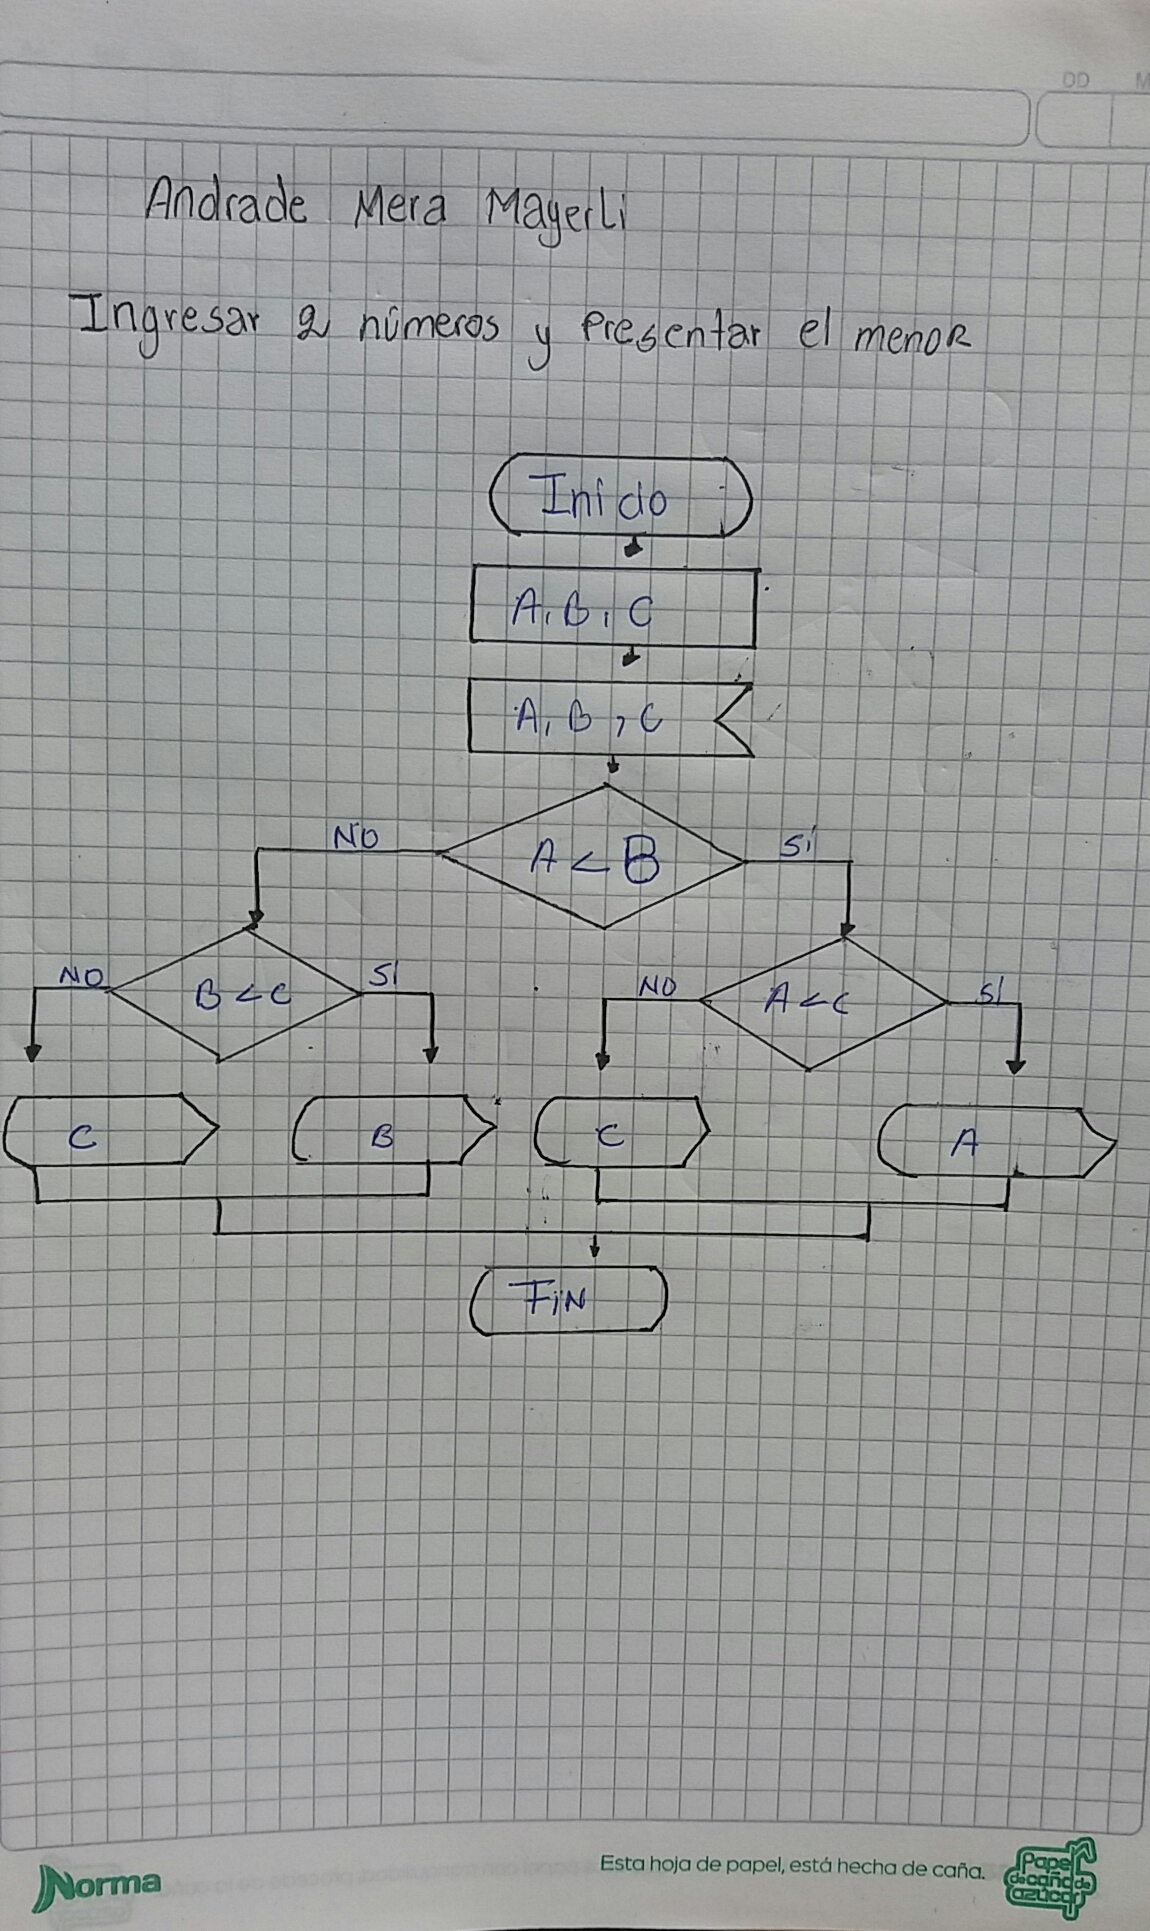 DD M
Andrade Mera Mayerli
Ingresar 2 números y Presentar el menor
Inicio
A, B, C
A, B, C
NO A < B SÍ
NO B < C SÍ NO A < C SÍ
C B C A
FIN
Norma Esta hoja de papel, está hecha de caña. Papel de caña de azúcar